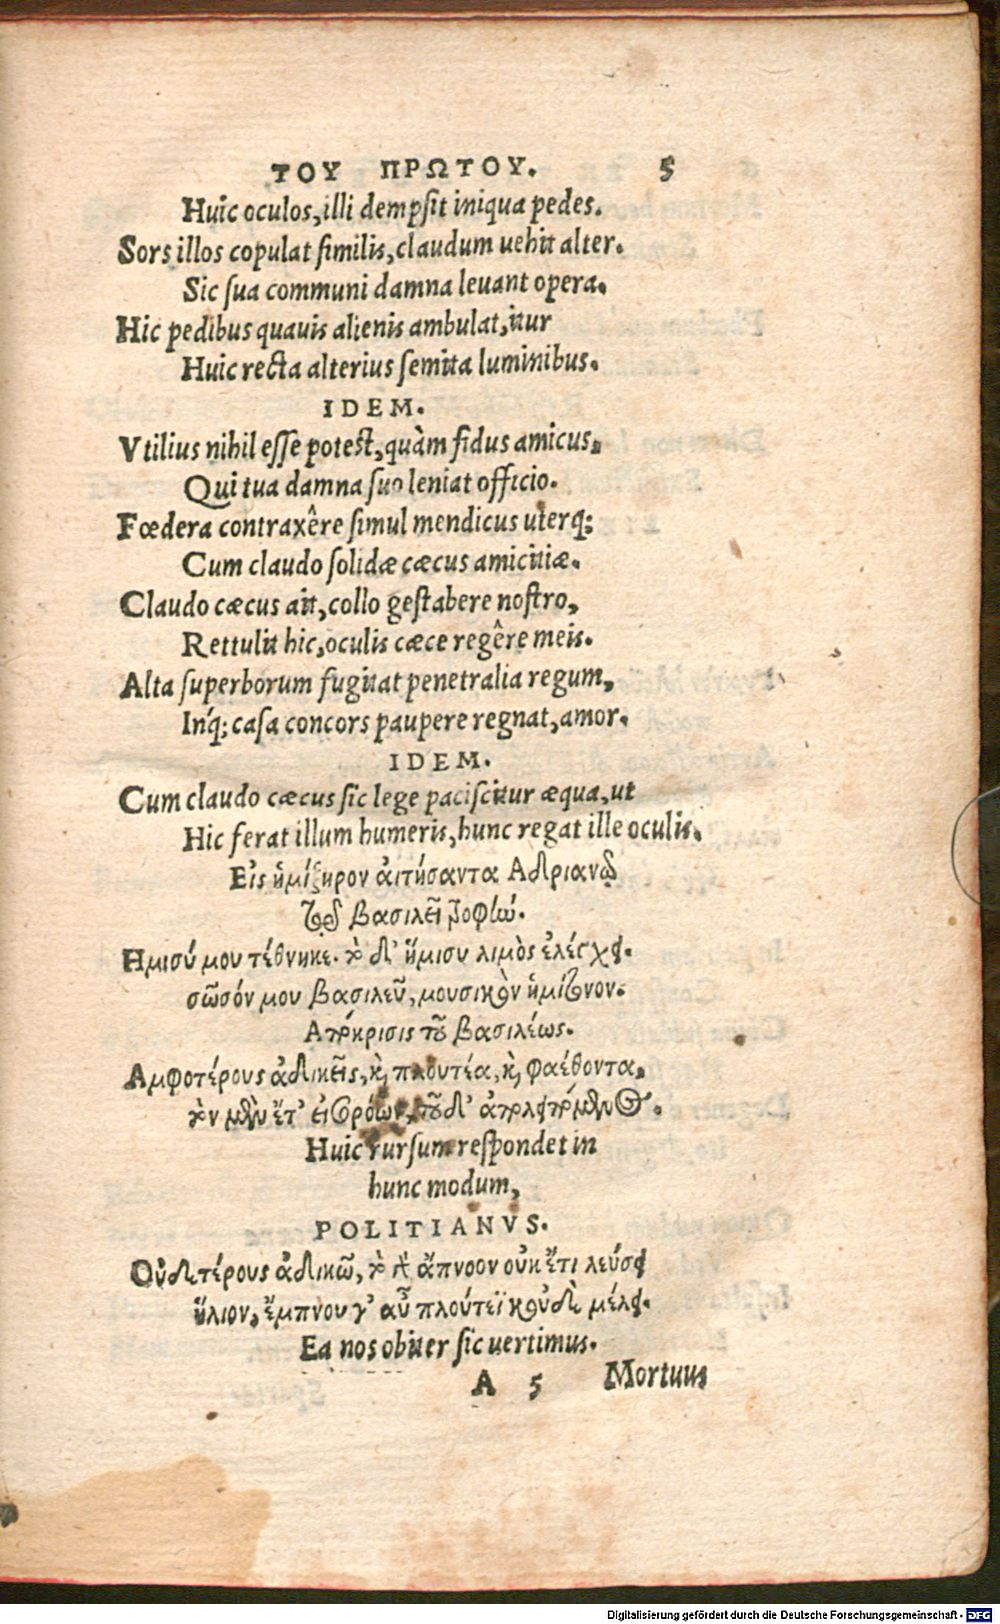 ΤΟΥ ΠΡΩΤΟΥ. 5
Huic oculos, illi dempsit iniqua pedes.
Sors illos copulat similis, claudum uehit alter.
Sic sua communi damna leuant opera.
Hic pedibus quauis alienis ambulat, itur
Huic recta alterius semita luminibus.
IDEM.
Vtilius nihil esse potest, quàm fidus amicus,
Qui tua damna suo leniat officio.
Fœdera contraxêre simul mendicus uterq;
Cum claudo solidæ cæcus amicitiæ.
Claudo cæcus ait, collo gestabere nostro,
Rettulit hic, oculis cæce regêre meis.
Alta superborum fugitat penetralia regum,
Inq́; casa concors paupere regnat, amor.
IDEM.
Cum claudo cæcus sic lege paciscitur æqua, ut
Hic ferat illum humeris, hunc regat ille oculis.
Εἰς ἡμίξηρον ἀιτήσαντα Αδριανῷ
τῷ βασιλεῖ ζοφίω.
Ημισύ μου τέθνηκε. τὸ δ' ἥμισυ λιμὸς ἐλέγχει.
σῶσόν μου βασιλεῦ, μουσικὸν ἡμίτονον.
Απόκρισις τοῦ βασιλέως.
Αμφοτέρους ἀδικεῖς, καὶ πλουτέα, καὶ φαέθοντα,
τὸν μὲν ἔτ' εἰσορόων, τοῦ δ' ἀπολειπόμενος.
Huic rursum respondet in
hunc modum,
POLITIANVS.
Οὐδετέρους ἀδικῶ, τὸ ἄπνοον οὐκ ἔτι λεύσει
ἥλιον, ἔμπνου γ' αὖ πλούτεϊ κοὐδὲ μέλει.
Ea nos obiter sic uertimus.
A 5 Mortuus
Digitalisierung gefördert durch die Deutsche Forschungsgemeinschaft - DFG